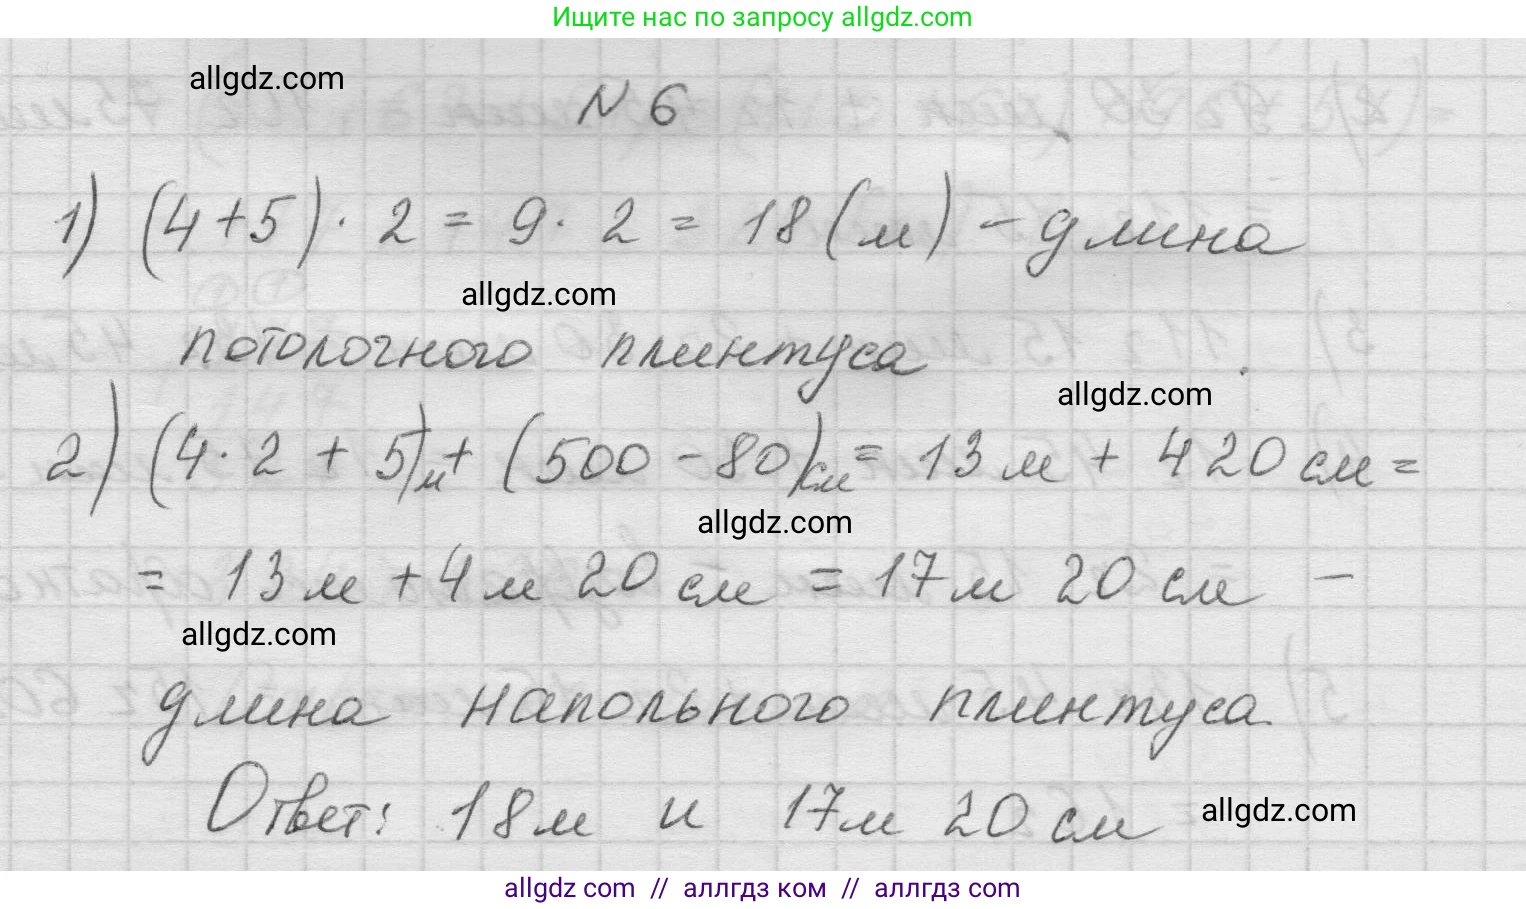 Ищите нас по запросу allgdz.com
allgdz.com
N 6
1) (4+5) · 2 = 9 · 2 = 18 (м) – длина
allgdz.com
потолочного плинтуса
allgdz.com
2) (4 · 2 + 5)м + (500 - 80)см = 13 м + 420 см =
allgdz.com
= 13 м + 4 м 20 см = 17 м 20 см –
allgdz.com
длина напольного плинтуса
Ответ: 18 м и 17 м 20 см
allgdz.com
allgdz com // аллгдз ком // аллгдз com